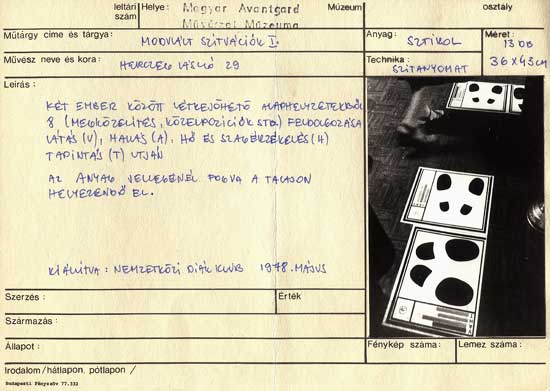 leltári szám Helye: Magyar Avantgard Művészet Múzeuma Múzeum osztály
Műtárgy címe és tárgya: MODULÁLT SZITUÁCIÓK I. Anyag: SZTIROL Méret: 13 DB
Művész neve és kora: HERCZEG LÁSZLÓ 29 Technika: SZITANYOMAT 36 x 43 cm
Leírás:
KÉT EMBER KÖZÖTT LÉTREJÖHETŐ ALAPHELYZETEKBŐL
8 (MEGKÖZELÍTÉS, KÖZELPOZÍCIÓK STB.) FELDOLGOZÁSA
LÁTÁS (V), HALLÁS (A), HŐ ÉS SZAGÉRZÉKELÉS (H)
TAPINTÁS (T) UTJÁN
AZ ANYAG JELLEGÉNÉL FOGVA A TALAJON
HELYEZENDŐ EL.
KIÁLLÍTVA: NEMZETKÖZI DIÁK KLUB 1978. MÁJUS
Szerzés: Érték
Származás:
Állapot: Fénykép száma: Lemez száma:
Irodalom /hátlapon, pótlapon /
Budapesti Fényszöv 77.332